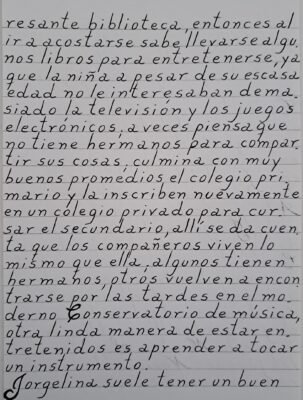 resante biblioteca, entonces al
ir a acostarse sabe llevarse algu
nos libros para entretenerse, ya
que la niña a pesar de su escasa
edad no le interesaban dema
siado la televisión y los juegos
electrónicos, a veces piensa que
no tiene hermanos para compar
tir sus cosas, culmina con muy
buenos promedios el colegio pri
mario y la inscriben nuevamente
en un colegio privado para cur
sar el secundario, allí se da cuen
ta que los compañeros viven lo
mismo que ella, algunos tienen
hermanos, otros vuelven a encon
trarse por las tardes en el mo
derno Conservatorio de música,
otra linda manera de estar en
tretenidos es aprender a tocar
un instrumento.
Jorgelina suele tener un buen